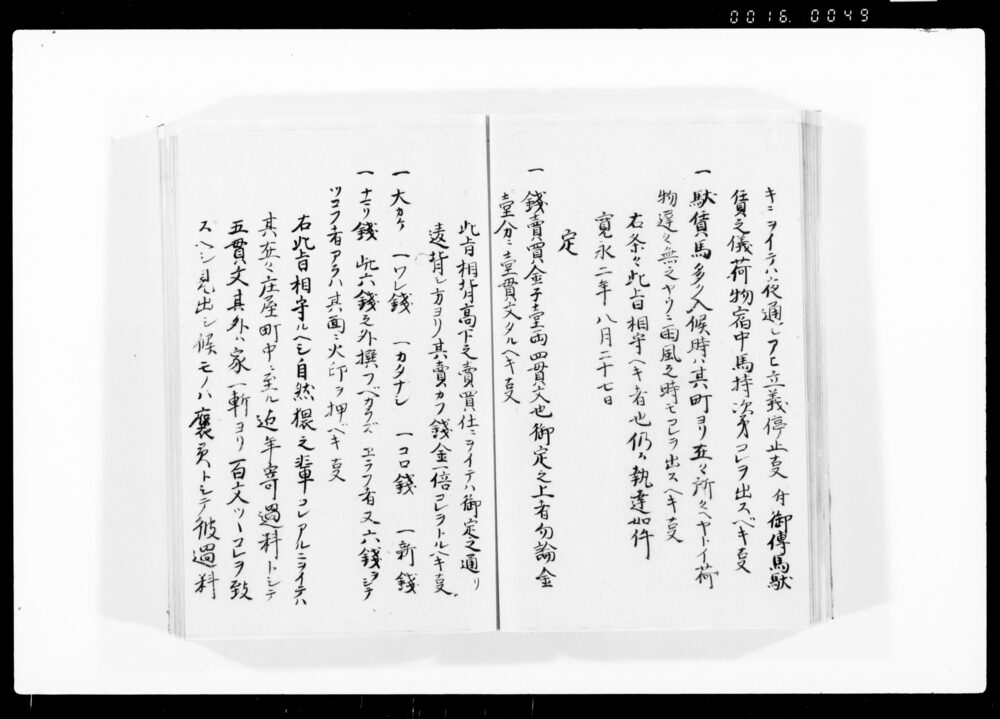 0016. 0049
キニヲイテハ夜通シアヒ立義停止支 付御傳馬駄
賃之儀荷物宿中馬持次第コレヲ出スベキ支
一 駄賃馬多ク入候時ハ其町ヨリ在々所々ヘヤトイ荷
物遅々無之ヤウニ雨風之時モコレヲ出スヘキ支
右条々此旨相守ヘキ者也仍執達如件
寛永二年八月二十七日
定
一 錢賣買金子壹両四貫文也御定之上者勿論金
壹分ニ壹貫文タルヘキ支
此旨相背高下之賣買仕ニヲイテハ御定之通リ
違背シ方ヨリ其賣カフ錢金一倍コレヲトルヘキ支
一 大カケ 一ワレ錢 一カタナシ 一コロ錢 一新錢
一 ナマリ錢 此六錢之外撰フベカラズ ヱラフ者又六錢ヲシテ
ツコフ者アラハ其面ニ火印ヲ押ヘキ支
右此旨相守ルヘシ自然猥之輩コレアルニヲイテハ
其在々庄屋町中ニ至ル迄年寄過料トシテ
五貫文其外ハ家一軒ヨリ百文ツヽコレヲ致
スヘシ見出シ候モノハ褒美トシテ彼過料